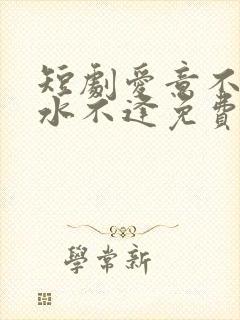 短劇愛意不
水不逢免費
學常新